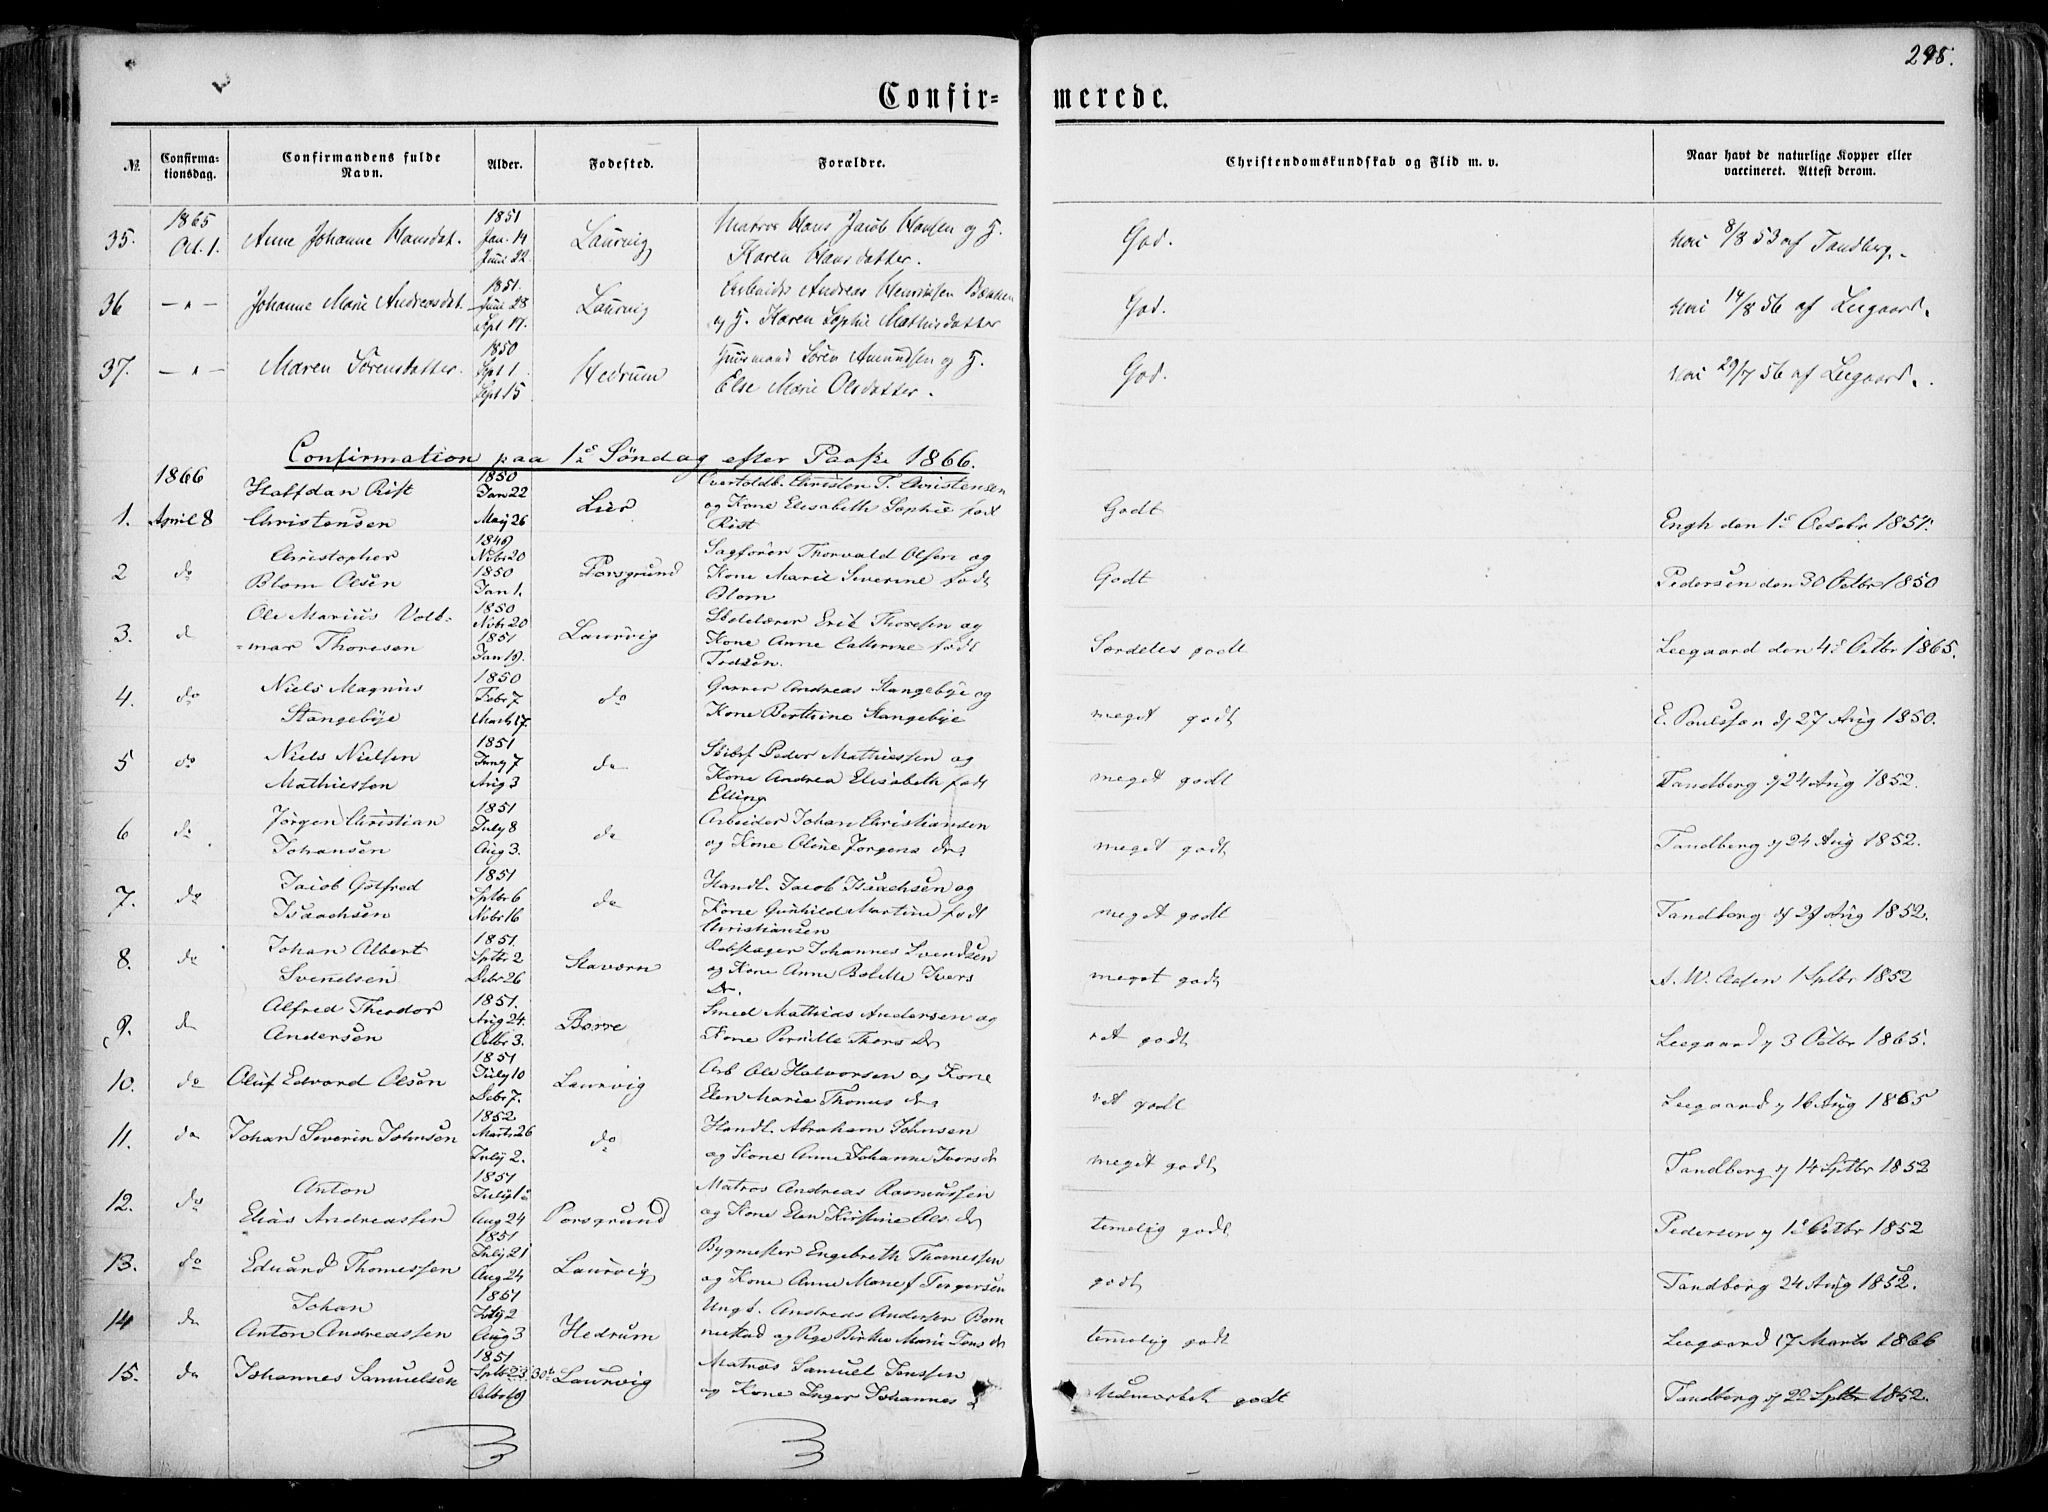 298.
Confirmerede.
№ Confirmationsdag. Confirmandens fulde Navn. Alder. Fodested. Forældre. Christendomskundskab og Flid m. v. Naar havt de naturlige Kopper eller vaccineret. Attest derom.
1865 1851 Matros Hans Jacob Hansen og H.
35. Oct. 1. Anne Johanne Hansdat. Jan. 14 Laurvig God. 8/8 53 af Tandberg.
Juni 22. Karen Hansdatter.
1851. Andreas Henriksen
36 — " — Johanne Marie Andreasdat. Juni 28 Laurvig God. 14/8 56 af Leegaard.
Spt 17. og H. Karen Sophie Mathisdatter
1850 Huusmand Sören Amundsen og H.
37. — " — Maren Sörensdatter. Spt 1. Hedrum God. 29/7 56 af Leegaard.
Spt 15 Else Marie Olsdatter.
Confirmation paa 1e Söndag efter Paaske 1866.
1866 Halfdan Rist 1850 Overtoldb. Christen T. Christensen
Jan 22 og Kone Elisabeth Sophie födt
1. April 8 Christensen Maij 26 Lier Rist Godt Engh den 1e Octobr 1851.
Christopher 1849 Nobr 20 Sagförer Thorvald Olsen og
2 do Blom Olsen 1850 Jan 1. Porsgrund Kone Marie Severine födt Blom Godt Pedersen den 30 Octbr 1850
Ole Marius Vold- 1850 Nobr 20 Skolelærer Erik Thoresen og
3. do =mar Thoresen 1851 Jan 19. Laurvig Kone Anne Cathrine födt Særdeles godt Leegaard den 4e Octbr 1865.
Niels Magnus 1850 Febr 7 Garver Andreas Stangebye og
4. do Stangebye Marts 17. do Kone Berthine Stangebye meget godt E. Poulssen d 27 Aug 1850.
Niels Nielsen 1851 Juny 7 Skibsf Peder Mathiessen og
5 do Mathiessen Aug 3 do Kone Andrea Elisabeth födt Elling meget godt Tandberg d 24 Aug 1852.
Jörgen Christian 1851 July 8 Arbeider Johan Christiansen
6 do Johansen Aug 3. do og Kone Oline Jörgens dr. meget godt Tandberg d 24 Aug 1852.
Jacob Gotfred 1851 Sptbr 6 Handl. Jacob Isaachsen og
7. do Isaachsen Nobr 16 do Kone Gunhild Martine födt Christiansen meget godt Tandberg d 24 Aug 1852.
Johan Albert 1851. Sptbr 2 Rebslager Johannes Svendsen
8. do Svendsen Debr 26 Staværn og Kone Anne Bolette Ivers Dr. meget godt A. W. Aasen 1 Sptbr 1852
Alfred Theodor 1851. Aug 24. Smed Mathias Andersen og
9. do Andersen Octbr 3. Borre Kone Pernille Thors Dr ret godt Leegaard d 3 Octbr 1865.
1851 July 10 Arb Ole Halvorsen og Kone
10. do Oluf Edvard Olsen Debr 7. Laurvig Elen Marie Thomas dr. ret godt Leegaard d 16 Aug 1865
1852 Marts 26 Handl. Abraham Johnsen
11. do Johan Severin Johnsen July 2. do og Kone Anne Johanne Ivers dr meget godt Tandberg d 14 Sptbr 1852
Anton 1851 July 12 Matros Andreas Rasmussen
12. do Elias Andreassen Aug 24 Porsgrund og Kone Elen Kirstine Ols. dr temelig godt Pedersen d 1e Octbr 1852
1851 July 21 Bygmester Engebreth Thomessen
13. do Eduard Thomessen Aug 24 Laurvig og Kone Anne Marie f Torgersen godt Tandberg 24 Aug 1852.
Johan 1851 July 2 Ungk. Andreas Andersen Bom
14 do Anton Andreassen Aug 3 Hedrum mestad og Pige Birthe Marie Jens dr temelig godt Leegaard 17 Marts 1866
1851 Sptbr 23. Matros Samuel Jenssen
15. do Johannes Samuelsen Octbr 19 Laurvig og Kone Inger Johannes d Udmærket godt Tandberg d 22 Sptbr 1852.